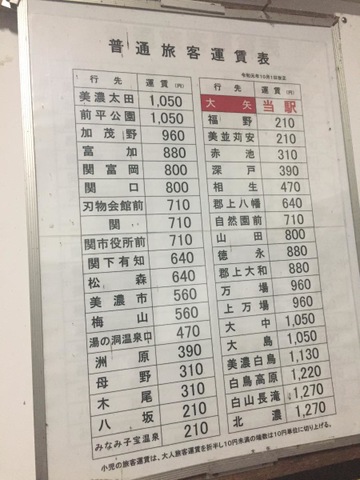 普通旅客運賃表
令和元年10月1日改正
行先 運賃(円)
美濃太田 1,050
前平公園 1,050
加茂野 960
富加 880
関富岡 800
関口 800
刃物会館前 710
関 710
関市役所前 710
関下有知 640
松森 640
美濃市 560
梅山 560
湯の洞温泉口 470
洲原 390
母野 310
木尾 310
八坂 210
みなみ子宝温泉 210
行先 運賃(円)
大矢 当駅
福野 210
美並苅安 210
赤池 310
深戸 390
相生 470
郡上八幡 640
自然園前 710
山田 800
徳永 880
郡上大和 880
万場 960
上万場 960
大中 1,050
大島 1,050
美濃白鳥 1,130
白鳥高原 1,220
白山長滝 1,270
北濃 1,270
小児の旅客運賃は、大人旅客運賃を折半し10円未満の端数は10円単位に切り上げる。